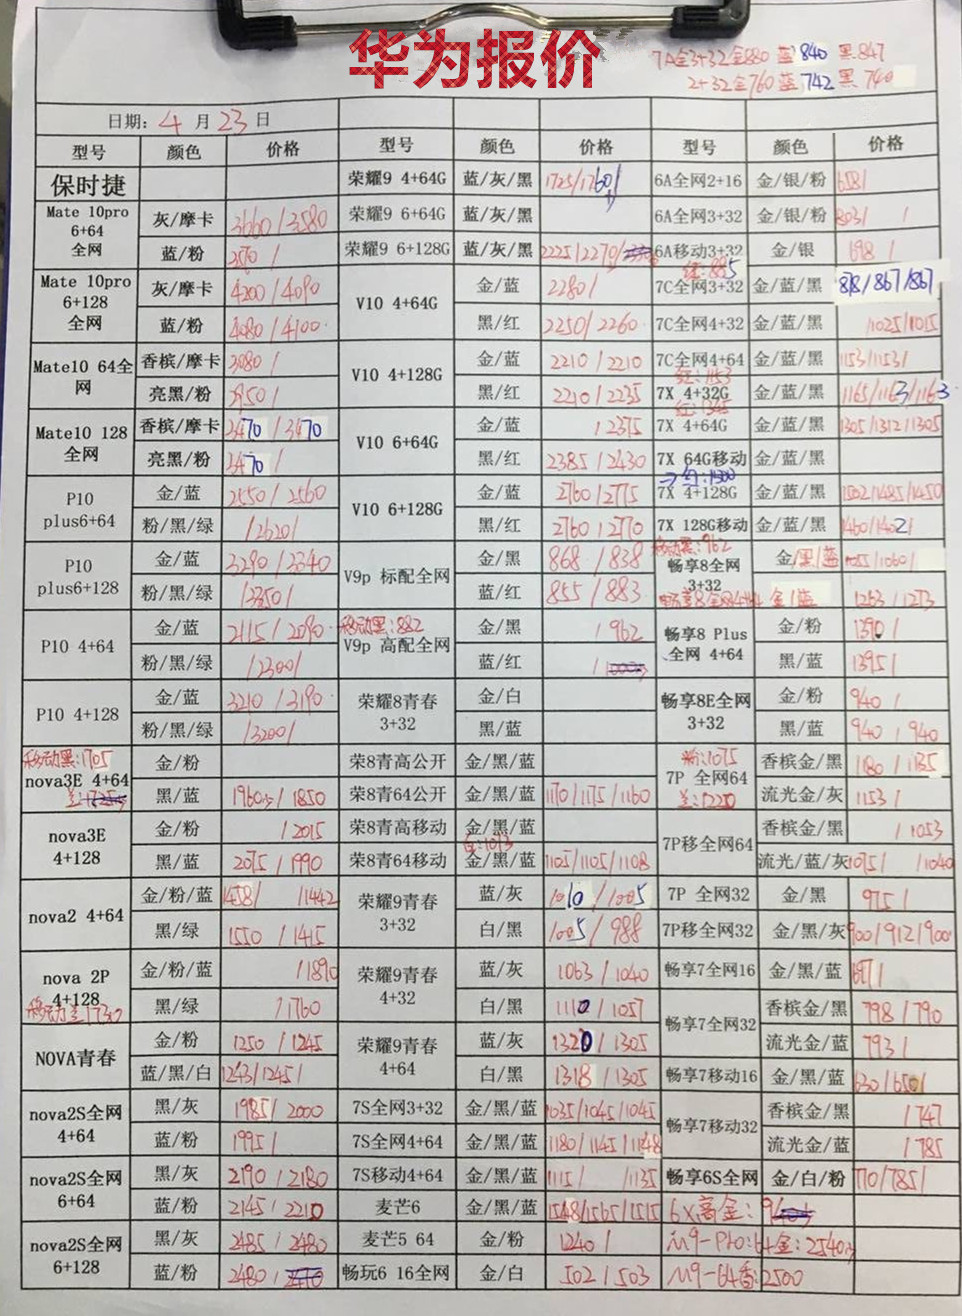 华为报价
7A全3+32金880 蓝840 黑847
2+32金760蓝742黑740
日期: 4月23日
型号 颜色 价格 型号 颜色 价格 型号 颜色 价格
保时捷 荣耀9 4+64G 蓝/灰/黑 1725/1760/ 6A全网2+16 金/银/粉 658/
Mate 10pro 6+64 全网 灰/摩卡 3660/3580 荣耀9 6+64G 蓝/灰/黑 6A全网3+32 金/银/粉 803/ /
蓝/粉 荣耀9 6+128G 蓝/灰/黑 2225/2270/ 6A移动3+32 金/银 698/
红:885
Mate 10pro 6+128 全网 灰/摩卡 4200/4090 V10 4+64G 金/蓝 2280/ 7C全网3+32 金/蓝/黑 878/867/867
蓝/粉 4080/4100 黑/红 2250/2260 7C全网4+32 金/蓝/黑 /1025/1015
Mate10 64全网 香槟/摩卡 3080/ V10 4+128G 金/蓝 2210/2210 7C全网4+64 金/蓝/黑 1153/1153/
红:1153
亮黑/粉 黑/红 2210/2235 7X 4+32G 金/蓝/黑 1165/1163/1163
红:1305
Mate10 128全网 香槟/摩卡 3470/3470 V10 6+64G 金/蓝 /2375 7X 4+64G 金/蓝/黑 1305/1312/1305
亮黑/粉 3470/ 黑/红 2385/2430 7X 64G移动 金/蓝/黑
红:1500
P10 plus6+64 金/蓝 2550/2560 V10 6+128G 金/蓝 2760/2775 7X 4+128G 金/蓝/黑 1502/1485/1450
粉/黑/绿 /2620/ 黑/红 2760/2770 7X 128G移动 金/蓝/黑 1460/1402/
移动黑:962
P10 plus6+128 金/蓝 3290/3340 V9p 标配全网 金/黑 868/838 畅享8全网 3+32 金/黑/蓝 1055/1060/
粉/黑/绿 /3350/ 蓝/红 855/883 畅享8全网4+64 金/蓝 1263/1273
移动黑:882
P10 4+64 金/蓝 2115/2090 V9p 高配全网 金/黑 /962 畅享8 Plus 全网 4+64 金/粉 1390/
粉/黑/绿 /2300/ 蓝/红 黑/蓝 1395/
P10 4+128 金/蓝 3210/3190 荣耀8青春 3+32 金/白 畅享8E全网 3+32 金/粉 940/
粉/黑/绿 /3200/ 黑/蓝 黑/蓝 940/940
移动黑:1705
nova3E 4+64 金/粉 荣8青高公开 金/黑/蓝 粉:1075 7P 全网64 兰:1220 香槟金/黑 1180/1135
黑/蓝 1960/1850 荣8青64公开 金/黑/蓝 1170/1175/1160 流光金/灰 1153/
nova3E 4+128 金/粉 /2015 荣8青高移动 金/黑/蓝 7P移全网64 香槟金/黑 /1053
白:1013
黑/蓝 2075/1990 荣8青64移动 金/黑/蓝 1105/1105/1108 流光/蓝/灰 1075/ /1040
nova2 4+64 金/粉/蓝 1458/ /1442 荣耀9青春 3+32 蓝/灰 1010/1005 7P 全网32 金/黑 975/
黑/绿 1550/1415 白/黑 1005/988 7P移全网32 金/黑/灰 900/912/900
nova 2P 4+128 金/粉/蓝 /1890 荣耀9青春 4+32 蓝/灰 1063/1040 畅享7全网16 金/黑/蓝 697/
黑/绿 /1760 白/黑 1110/1057 畅享7全网32 香槟金/黑 798/790
NOVA青春 金/粉 1250/1245 荣耀9青春 4+64 蓝/灰 1320/1305 流光金/蓝 793/
蓝/黑/白 1243/1245/ 白/黑 1318/1305 畅享7移动16 金/黑/蓝 630/650/
nova2S全网 4+64 黑/灰 1985/2000 7S全网3+32 金/黑/蓝 1035/1045/1045 畅享7移动32 香槟金/黑 /747
蓝/粉 1995/ 7S全网4+64 金/黑/蓝 1180/1145/1148 流光金/蓝 /785
nova2S全网 6+64 黑/灰 2190/2180 7S移动4+64 金/黑/蓝 1115/ /1135 畅享6S全网 金/白/粉 770/785/
蓝/粉 2145/2210 麦芒6 金/黑/蓝 1548/1565/1515 6X高金:
nova2S全网 6+128 黑/灰 2485/2480 麦芒5 64 金/粉 1240/ M9-Pro:64金:2540
蓝/粉 2480/ 畅玩6 16全网 金/白 502/503 M9-64香:2500